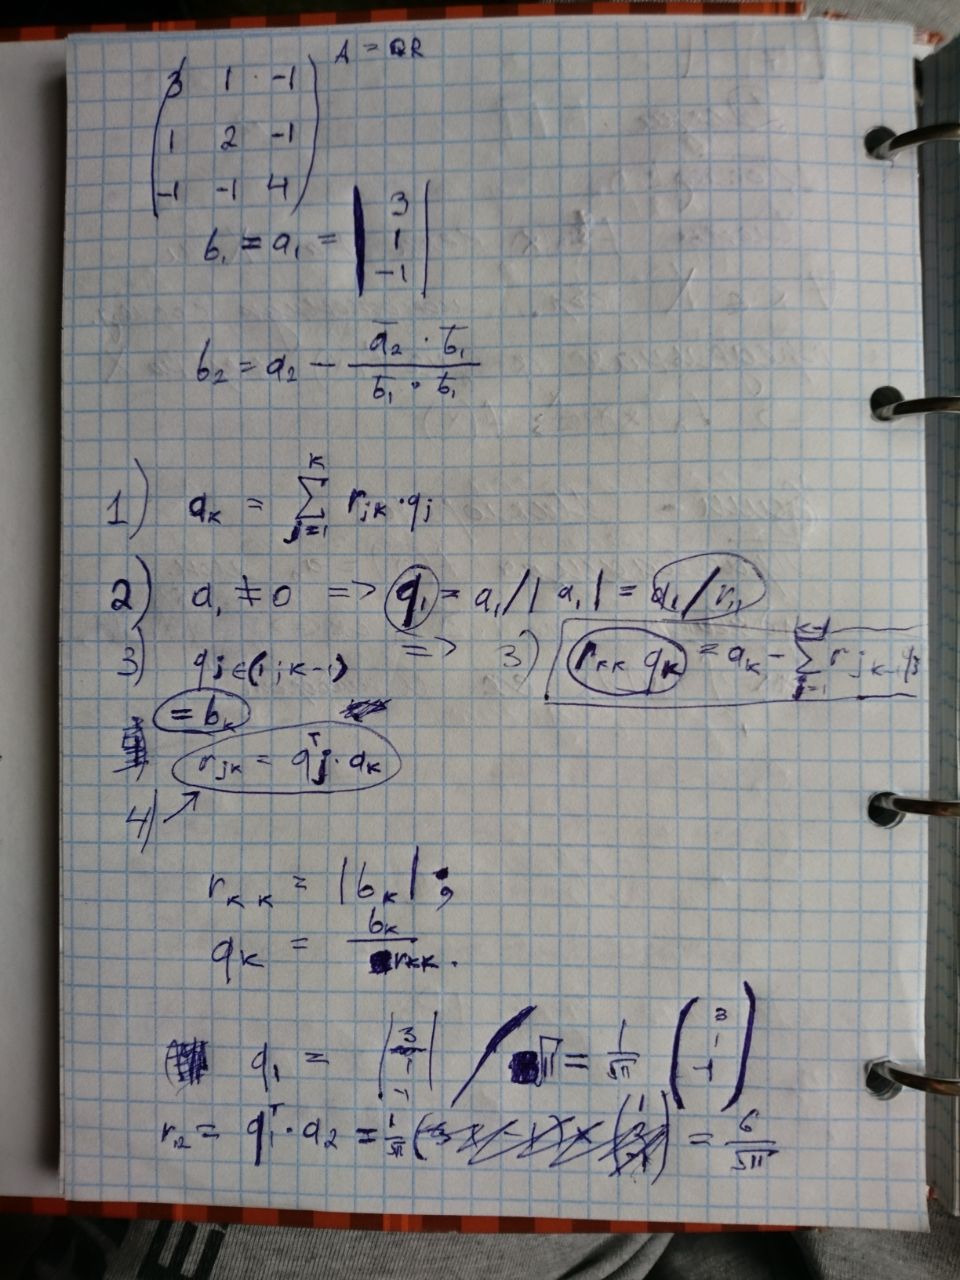 A = QR
3 1 -1
1 2 -1
-1 -1 4
b₁ = a₁ = | 3 1 -1 |
b₂ = a₂ - (a̅₂ · b̅₁) / (b̅₁ · b̅₁)
1) aₖ = ∑ⱼ₌₁ᵏ rⱼₖ · qⱼ
2) a₁ ≠ 0 => q₁ = a₁/|a₁| = a₁/r₁₁
3) qⱼ ∈ (1; k-1) => 3) rₖₖ qₖ = aₖ - ∑ⱼ₌₁ᵏ⁻¹ rⱼₖ qⱼ
= bₖ
rⱼₖ = qⱼᵀ · aₖ
4)
rₖₖ = |bₖ| ;
qₖ = bₖ / rₖₖ .
q₁ = | 3 1 -1 | / √11 = 1/√11 ( 3 1 -1 )
r₁₂ = q₁ᵀ · a₂ = 1/√11 = 6/√11